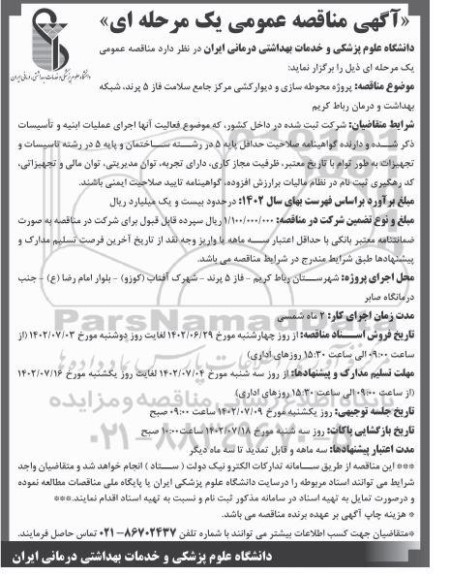 «آگهی مناقصه عمومی یک مرحله ای»
دانشگاه علوم پزشکی و خدمات بهداشتی درمانی ایران در نظر دارد مناقصه عمومی
یک مرحله ای ذیل را برگزار نماید:
موضوع مناقصه: پروژه محوطه سازی و دیوارکشی مرکز جامع سلامت فاز ۵ پرند، شبکه
بهداشت و درمان رباط کریم
شرایط متقاضیان: شرکت ثبت شده در داخل کشور، که موضوع فعالیت آنها اجرای عملیات ابنیه و تأسیسات
ذکر شده و دارنده گواهینامه صلاحیت حداقل پایه ۵ در رشته ساختمان و پایه ۵ در رشته تاسیسات و
تجهیزات به طور توام با تاریخ معتبر، ظرفیت مجاز کاری، دارای تجربه، توان مدیریتی، توان مالی و تجهیزاتی،
کد رهگیری ثبت نام در نظام مالیات برارزش افزوده، گواهینامه تایید صلاحیت ایمنی باشند.
مبلغ برآورد براساس فهرست بهای سال ۱۴۰۲: درحدود بیست و یک میلیارد ریال
مبلغ و نوع تضمین شرکت در مناقصه: ۱/۱۰۰/۰۰۰/۰۰۰ ریال سپرده قابل قبول برای شرکت در مناقصه به صورت
ضمانتنامه معتبر بانکی با حداقل اعتبار سه ماهه یا واریز وجه نقد از تاریخ آخرین فرصت تسلیم مدارک و
پیشنهادها طبق شرایط مندرج در شرایط مناقصه می باشد.
محل اجرای پروژه: شهرستان رباط کریم - فاز ۵ پرند - شهرک آفتاب (کوزو) - بلوار امام رضا (ع) - جنب
درمانگاه صابر
مدت زمان اجرای کار: ۲ ماه شمسی
تاریخ فروش اسناد مناقصه: از روز چهارشنبه مورخ ۱۴۰۲/۰۶/۲۹ لغایت روز دوشنبه مورخ ۱۴۰۲/۰۷/۰۳ (از
ساعت ۰۹:۰۰ الی ساعت ۱۵:۳۰ روزهای اداری)
مهلت تسلیم مدارک و پیشنهادها: از روز سه شنبه مورخ ۱۴۰۲/۰۷/۰۴ لغایت روز یکشنبه مورخ ۱۴۰۲/۰۷/۱۶
(از ساعت ۰۹:۰۰ الی ساعت ۱۵:۳۰ روزهای اداری)
تاریخ جلسه توجیهی: روز یکشنبه مورخ ۱۴۰۲/۰۷/۰۹ ساعت ۰۹:۰۰ صبح
تاریخ بازگشایی پاکات: روز سه شنبه مورخ ۱۴۰۲/۰۷/۱۸ ساعت ۱۰:۰۰ صبح
مدت اعتبار پیشنهادها: سه ماهه و قابل تمدید تا سه ماه دیگر
*** این مناقصه از طریق سامانه تدارکات الکترونیک دولت (ستاد) انجام خواهد شد و متقاضیان واجد
شرایط می توانند اسناد مربوطه را درسایت دانشگاه علوم پزشکی ایران یا پایگاه ملی مناقصات مطالعه نموده
و درصورت تمایل به تهیه اسناد در سامانه مذکور ثبت نام و نسبت به تهیه اسناد اقدام نمایند.***
* هزینه چاپ آگهی بر عهده برنده مناقصه می باشد.
*متقاضیان جهت کسب اطلاعات بیشتر می توانند با شماره تلفن ۸۶۷۰۲۴۳۷-۰۲۱ تماس حاصل فرمایند.
دانشگاه علوم پزشکی و خدمات بهداشتی درمانی ایران